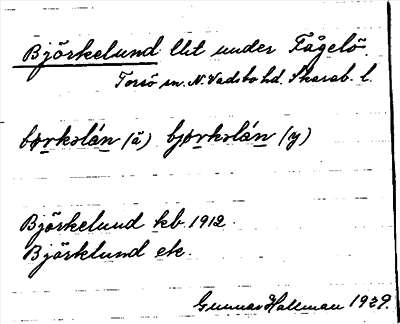 Björkelund lht under Fågelö.
Torsö sn. N. Vadsbo hd. Skarab. l.
bo̱rkslán (ä) bjo̱rkslán (y)
Björkelund kb 1912.
Björklund ek.
Gunnar Hallman 1929.